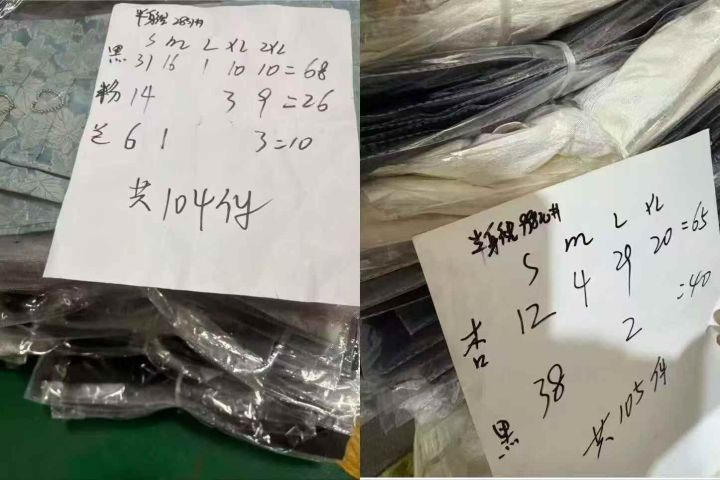 半身裙 285#
S M L XL 2XL
黑 31 16 1 10 10 = 68
粉 14 3 9 = 26
兰 6 1 3 = 10
共 104件
半身裙
S M L XL
杏 12 4 29 20 = 65
黑 38 2 = 40
共 105件